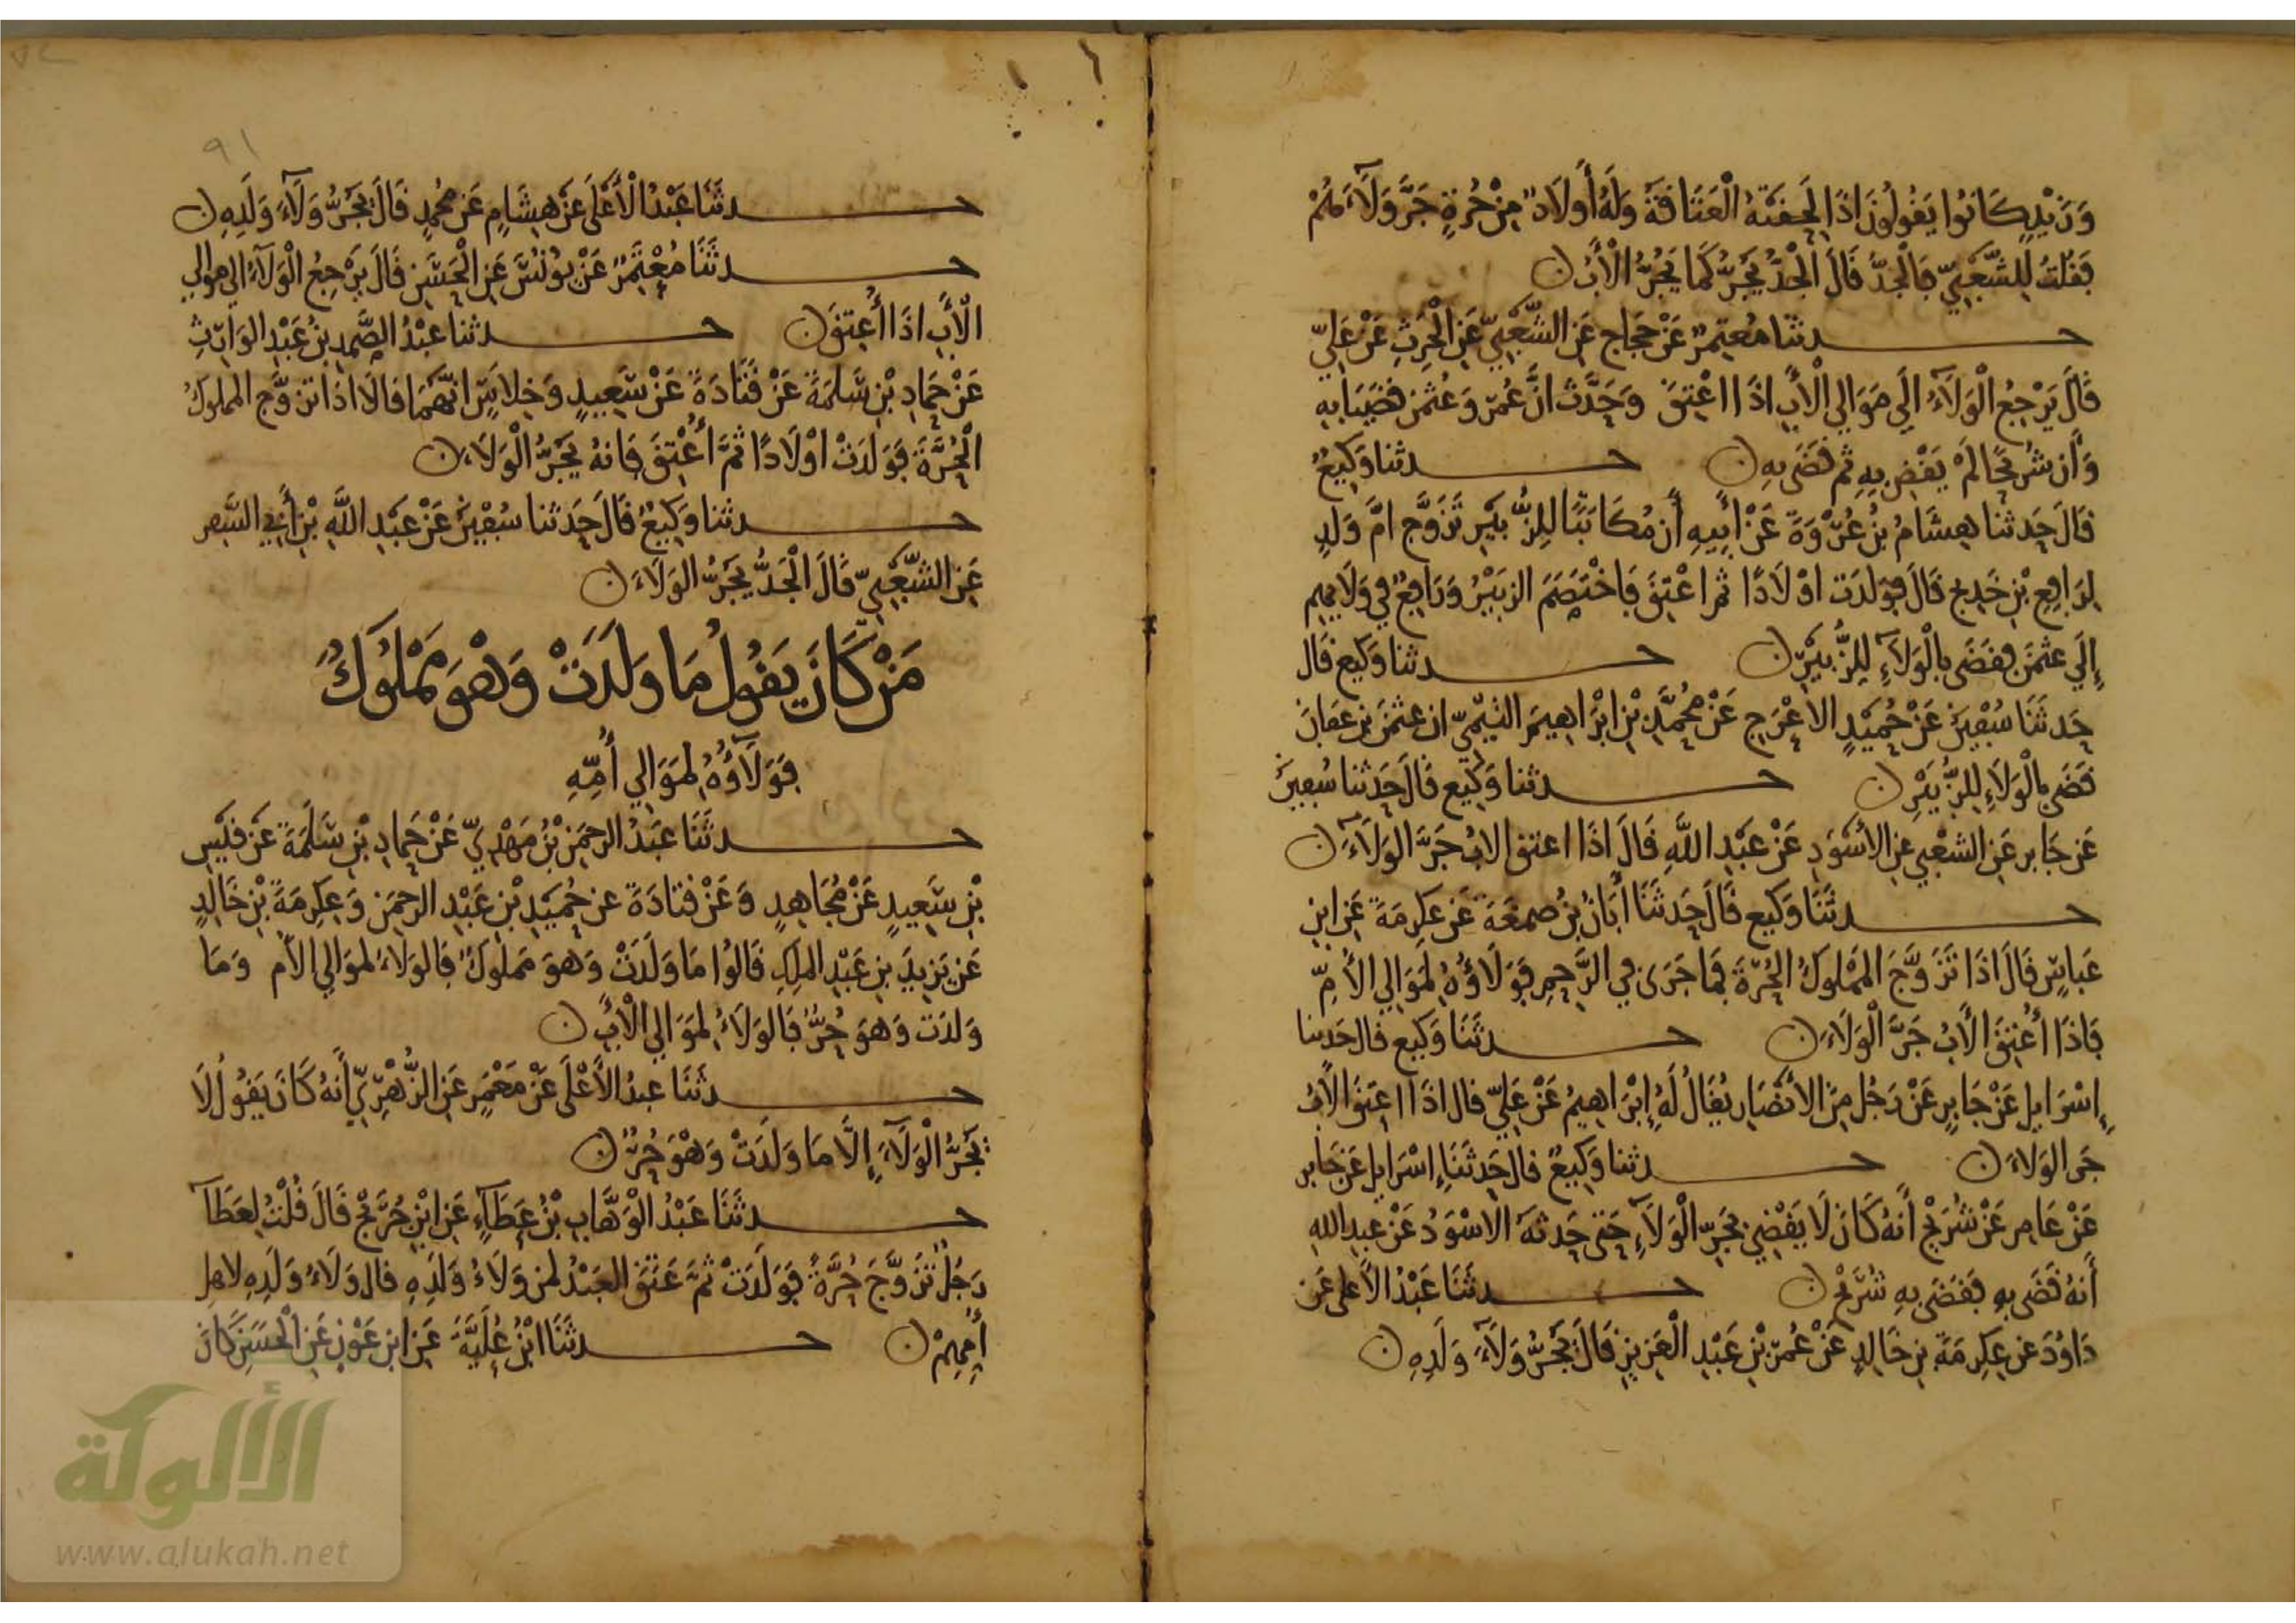 وَزَيْدٍ كَانُوا يَقُولُونَ اذَا لَحِقَتْهُ الْعَتَاقَةُ وَلَهُ أَولَادٌ مِنْ حُرَّةٍ جَرَّ وَلَآءَهُمْ
فَقُلتُ لِلشَّعْبِيّ فَالْجَدُّ قَالَ الْجَدُّ يَجُرُّ كَمَا يَجُرُّ الْأَبُ ۞
حـدثنا مُعتَمِرٌ عَنْ حَجَاج عَنِ الشَّعْبِيّ عَنِ الْحَرِثِ عَنْ عَلِيّ
قَالَ يَرْجِعُ الْوَلَآءُ الَى مَوَالِي الْأَبِ اذَا اعْتِقَ وَحَدَّث انَّ عُمَرَ وَعُثمٰنَ قَضَيَا بِهِ
وَأَن شُرَيحًا لَمْ يَقْضِ بِهِ ثُم قَضَى بِهِ ۞ حـدثنا وَكِيعٌ
قَالَ حَدثنا هِشَامُ بْنُ عُرْوَةَ عَنْ أَبِيهِ أَن مُكَاتبًا لِلزُّبَيْرِ تَزَوَّج امَّ وَلَدٍ
لِرَافِعِ بْنِ خَدِيج قَالَ فوَلدَت اوْلَادًا ثم اعْتِقَ فَاخْتَصَمَ الزبَيْرُ وَرَافِعٌ في وَلَايِهِم
إِلَي عثمٰنَ فقضَى بِالْوَلَآءِ لِلزُّبَيْرِ ۞ حـدثنا وَكيع قَال
حَدثَنَا سُفْيٰنُ عَنْ حُمَيْدٍ الاعْرَجِ عَنْ مُحَمَّدِ بْنِ ابْرَاهِيمَ التيْمِيّ ان عثمٰنَ بن عَفانَ
قَضَى بِالْوَلَاءِ لِلزُّبَيْرِ ۞ حـدثنا وَكِيع قَالَ حَدثنا سُفيٰنُ
عَن جَابر عَنِ الشعْبي عنِ الأسْوَدِ عَنْ عَبْدِ اللَّهِ قَالَ اذَا اعتق الابُ جَرَّ الوَلَآءَ ۞
حـدثَنَا وَكيع قَالَ حَدثَنَا أَبَانُ بْنُ صمعَةَ عَن عِكرِمَةَ عَنِ ابنِ
عَباسٍ قَالَ اذَا تَزَوَّجَ المَملوكُ الحُرَّةَ فَمَا جَرَى فِي الرَّحِمِ فَوَلَاؤُهُ لِمَوَالِي الأُمِّ
فَاذَا أُعْتِقَ الأَبُ جَرَّ الْوَلَاءَ ۞ حـدثَنَا وَكيع قال حَدثنا
إِسْرَايل عَنْ جَابرٍ عَنْ رَجُل مِنَ الأنْصَارِ يُقَالُ لَهُ إِبْرَاهِيمُ عَنْ عَلِيّ قال اذَا اعتِقَ الأَبُ
جَر الوَلاءَ ۞ حـدثنا وَكِيعٌ قال حَدثَنَا إِسْرَايل عَن جَابر
عَنْ عَامِر عَنْ شُرَيْح أَنهُ كَانَ لَا يَقْضِي بِجَرِّ الْوَلَآءِ حَتى حَدثهُ الاسْوَدُ عَنْ عبدِ اللهِ
أَنهُ قَضَى بِهِ فَقَضَى بِهِ شُرَيْحٌ ۞ حـدثَنَا عَبْدُ الأَعلى عَن
دَاوُدَ عن عِكرِمَةَ بنِ خَالِدٍ عَنْ عُمَرَ بْنِ عَبْدِ الْعَزِيزِ قَالَ يَجُرُّ وَلَآءَ وَلَدِهِ ۞
٩١
حـدثَنَا عَبْدُ الْأَعْلَى عَنْ هِشَامٍ عَن مُحَمدٍ قَالَ يَجُرُّ وَلَآءَ وَلَدِهِ ۞
حـدثَنَا مُعْتَمِرٌ عَنْ يُونُسَ عَنِ الْحَسَنِ قَالَ يَرْجِعُ الْوَلَآءُ الَى مَوَالِي
الْأَبِ اذَا أُعتِقَ ۞ حـدثنا عَبْدُ الصَّمَدِ بْنُ عَبْدِ الوَارِثِ
عَنْ حَمَادِ بْنِ سَلَمَةَ عَنْ قَتَادَةَ عَنْ سَعِيدٍ وَخِلاسٍ انهُمَا قالَا اذَا تزوَّج المملوكُ
الْحُرَّةَ فَوَلَدَتْ اوْلَادًا ثُمَّ أُعْتِقَ فَانهُ يَجُرُّ الْوَلَاءَ ۞
حـدثنا وَكِيعٌ قَالَ حَدثنا سُفْيٰنُ عَنْ عَبْدِ اللَّهِ بْنِ أَبِي السَّفر
عَنِ الشَّعْبِيّ قَالَ الْجَدُّ يَجُرُّ الوَلَاءَ ۞
مَنْ كَانَ يَقُولُ مَا وَلَدَتْ وَهْوَ مَمْلُوكٌ
فَوَلَآؤُهُ لِمَوَالِي أُمِّهِ
حـدثَنَا عَبْدُ الرحمَنِ بْنُ مَهْدِيّ عَنْ حَمادِ بْنِ سَلَمَةَ عَن قَيْسِ
بْنِ سَعِيدٍ عَنْ مُجَاهِدٍ وَعَنْ قتادَةَ عن حُمَيْدِ بْنِ عَبْدِ الرحمَنِ وَعِكرِمَةَ بْنِ خَالِدٍ
عَن يَزِيدَ بنِ عَبْدِ الملِكِ قَالُوا مَا وَلَدَتْ وَهوَ مَملوكٌ فَالوَلَاءُ لِموَالِي الأم وَمَا
وَلَدَت وَهوَ حُرٌّ فَالوَلَاءُ لِمَوَالِي الْأَبِ ۞
حـدثَنَا عبدُ الأَعْلَى عَنْ مَعْمَرٍ عَنِ الزُّهْرِيّ أَنهُ كَانَ يَقُولُ لَا
يَجُرُّ الْوَلَآءَ إِلَّا مَا وَلَدَتْ وَهْوَ حُرٌّ ۞
حـدثَنَا عَبْدُ الْوَهَّابِ بْنُ عَطَآءٍ عَنِ ابْنِ جُرَيْجٍ قَالَ قُلْتُ لِعَطَآءٍ
رَجُلٌ تَزَوَّجَ حُرَّةً فَوَلَدَتْ ثمَّ عَتَقَ العَبْدُ لِمن وَلَاءُ وَلَدِهِ قال وَلَاءُ وَلَدِهِ لاهلِ
أُمِّهِمْ ۞ حـدثَنَا ابْنُ عُلَيَّةَ عَنِ ابنِ عَوْنٍ عَنِ الْحَسَنِ كَانَ
الألوكة
www.alukah.net